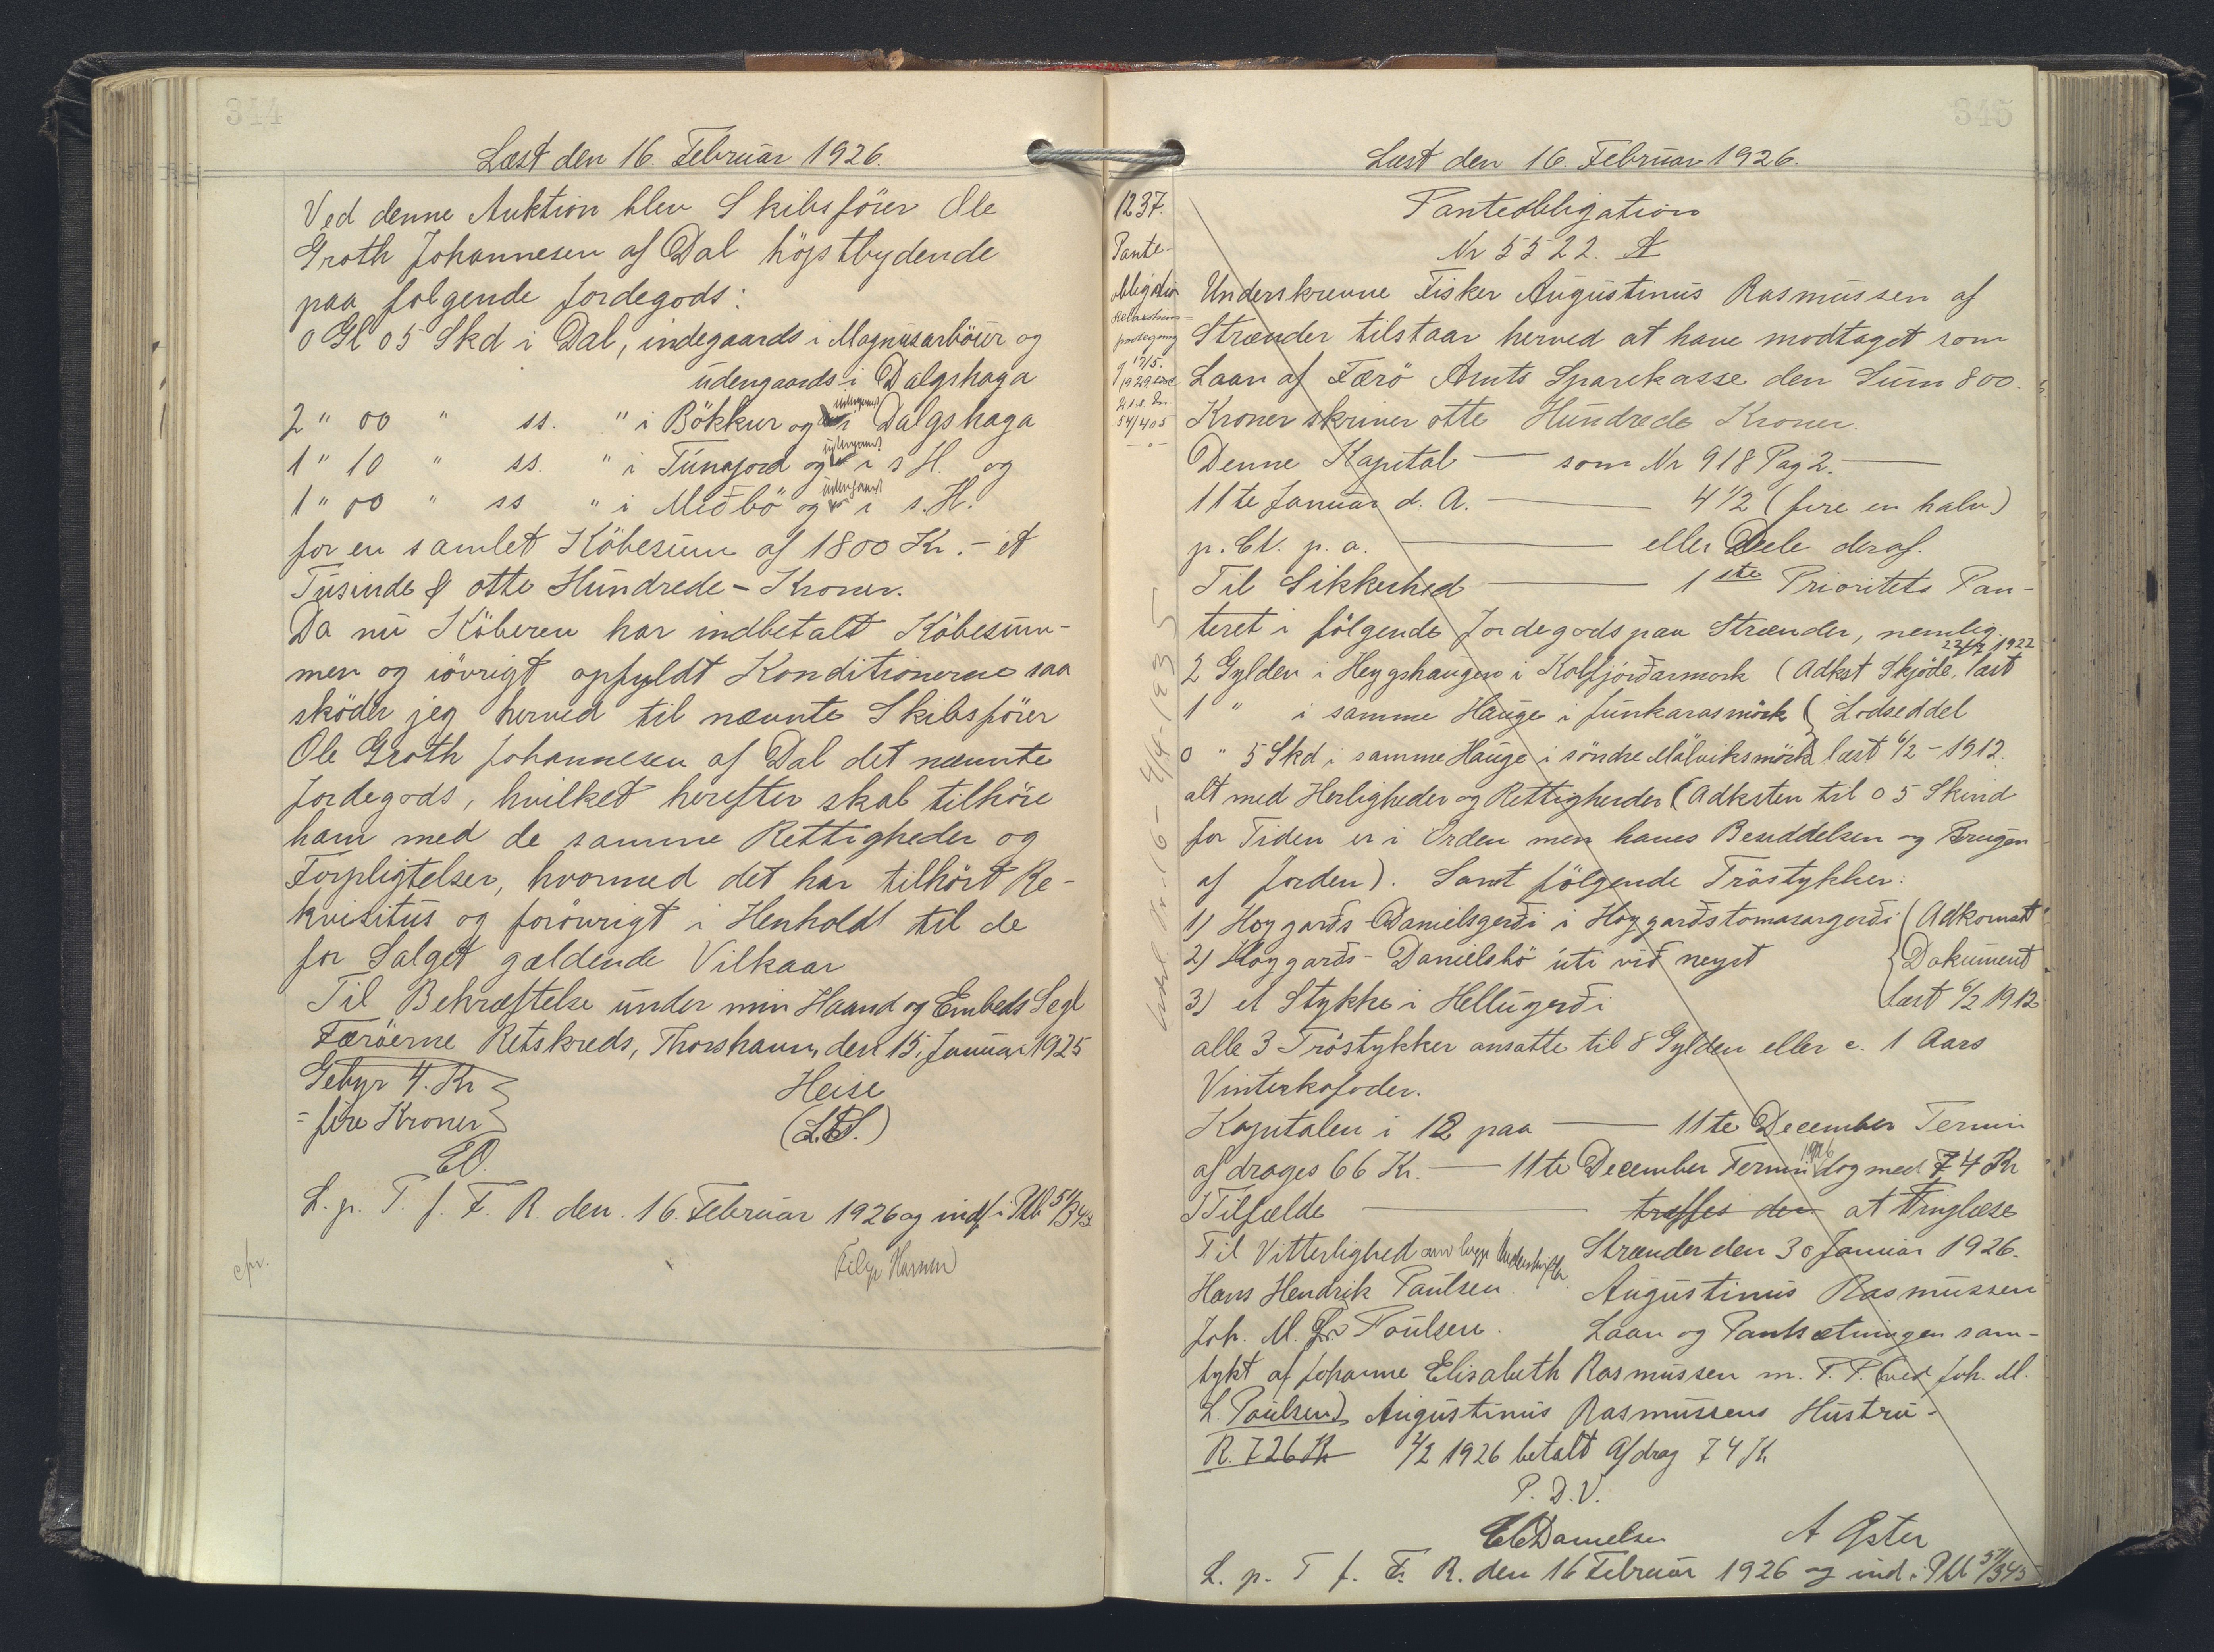 344
Læst den 16. Februar 1926.
Ved denne Auktion blev Skibsförer Ole
Groth Johannesen af Dal höjstbydende
paa følgende Jordegods:
0 Gl 05 Skd i Dal, indegaards i Magnusarböur og
udengaards i Dalgshaga
2 " 00 " ss. " i Bökkur og udengaards i Dalgshaga
1 " 10 " ss. " i Túnafjord og udengaards i s H. og
1 " 00 " ss " i Miðbö og udengaards i s. H.
for en samlet Köbesum af 1800 Kr. - et
Tusinde & otte Hundrede - Kroner.
Da nu Köberen har indbetalt Köbesum-
men og iövrigt opfyldt Konditionerne saa
sköder jeg herved til nævnte Skibsförer
Ole Groth Johannesen af Dal det nævnte
Jordegods, hvilket herefter skal tilhöre
ham med de samme Rettigheder og
Forpligtelser, hvormed det har tilhört Re-
kvisitus og forövrigt i Henhold til de
for Salget gældende Vilkaar
Til Bekræftelse under min Haand og Embeds Segl
Færöerne Retskreds, Thorshavn, den 15. Januar 1925
Gebyr 4. Kr
= fire Kroner
Heise
(L.S.)
EO.
L. p. T. f. F. R. den 16. Februar 1926 og indf. i Pb. 51/343
cfr.
345
Læst den 16. Februar 1926.
1237.
Pante-
obligation
17/5.
1929
54/405
Panteobligation
Nr 5522. A
Underskrevne Fisker Augustinus Rasmussen af
Strænder tilstaar herved at have modtaget som
Laan af Færö Amts Sparekasse den Sum 800.
Kroner skriver otte Hundrede Kroner.
Denne Kapital — som Nr 918 Pag 2. —
11te Januar d. A. — 4 1/2 (fire en halv)
p. Ct. p. a. — eller Dele deraf.
Til Sikkerhed — 1ste Prioritets Pan-
teret i fölgende Jordegods paa Strænder, nemlig
22/2 1922
2 Gylden i Heygshaugen i Kolfjórðarmork (Adkst Skjöde, læst
1 " i samme Hauge i Junkarasmörk ( Lodseddel
0 " 5 Skd i samme Hauge i söndre Málviksmörk læst 6/2 - 1912.
alt med Herligheder og Rettigheder (Adksten til 0 5 Skind
for Tiden er i Orden men haves Besiddelsen og Brugen
af Jorden). Samt fölgende Tröstykker:
1) Hoygarðs-Danielsgerði i Hoygarðstomasargerði (Adkomst
2) Hoygarðs - Danielsbö úti við neyst Dokument
3) et Stykke i Hellugerði læst 6/2 1912
alle 3 Tröstykker ansatte til 8 Gylden eller c. 1 Aars
Vinterkofoder.
Kapitalen i 12 paa — 11te December Termin
afdrages 66 Kr. — 11te December Termin 1926 dog med 74 Kr
I Tilfælde — træffes den at Tinglæse
Til Vitterlighed om begge Underskrifter Strænder den 30 Januar 1926.
Hans Hendrik Paulsen. Augustinus Rasmussen
Joh. M. L. Poulsen. Laan og Pantsætningen sam-
tykt af Johanne Elisabeth Rasmussen m. F. P. (ved Joh. M.
L. Poulsen) Augustinus Rasmussens Hustru -
R. 726 Kr 2/2 1926 betalt Afdrag 74 Kr
P. D. V.
Danielsen A Oster
L. p. T f. F. R. den 16 Februar 1926 og ind. i Pb 51/345